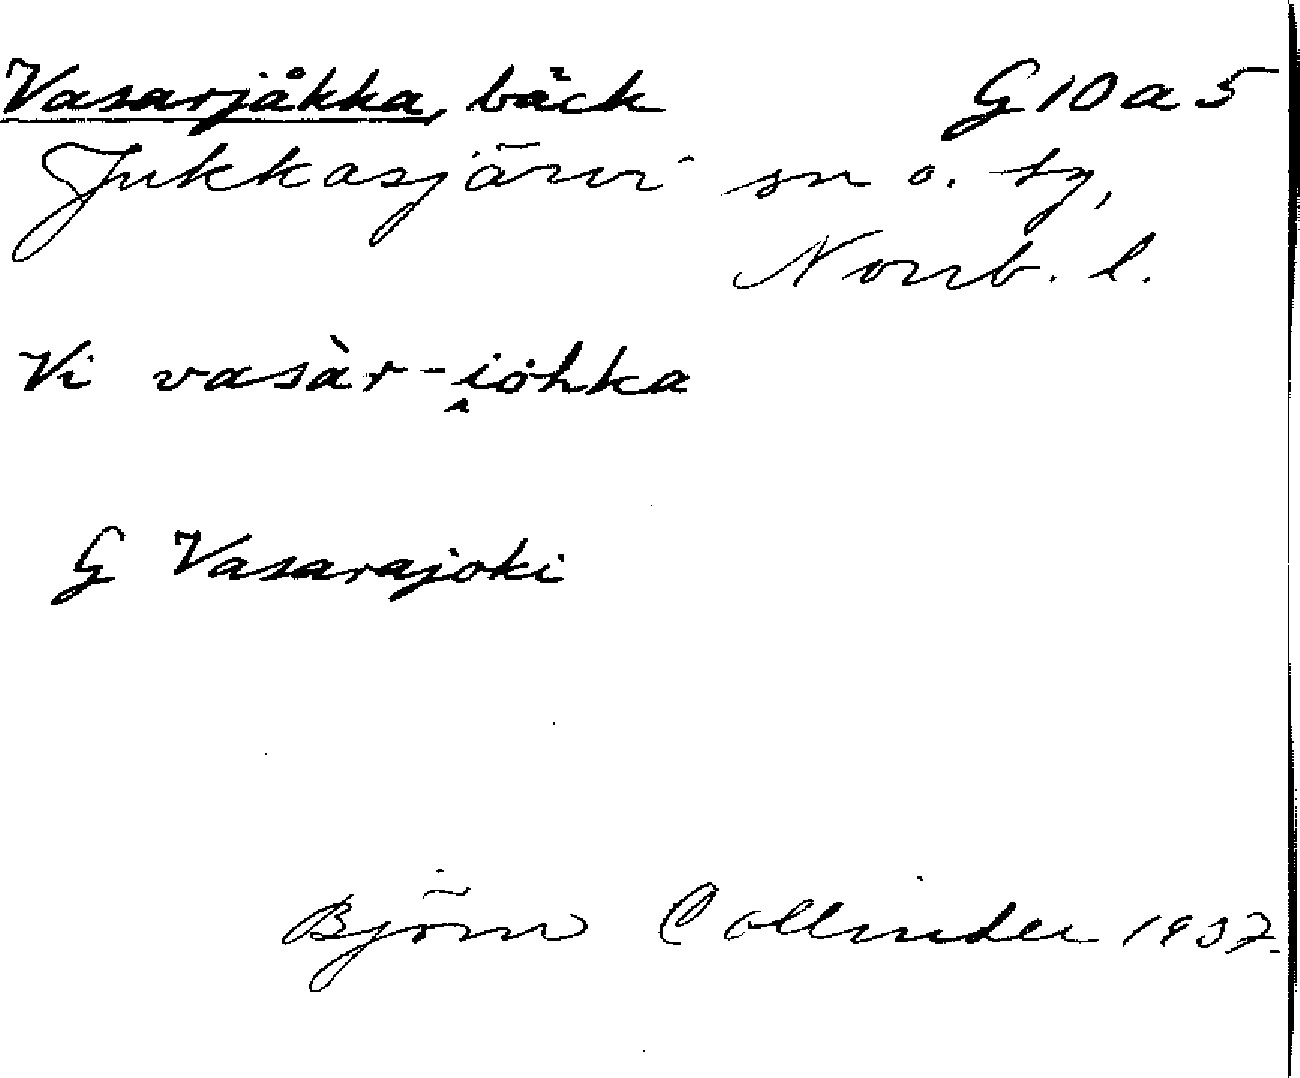 Vasarjåkka, bäck G10a5
Jukkasjärvi sn o. tg,
Norrb. l.
Vi vasàr-i̭ȯhka
G Vasarajoki
Björn Collinder 1937.